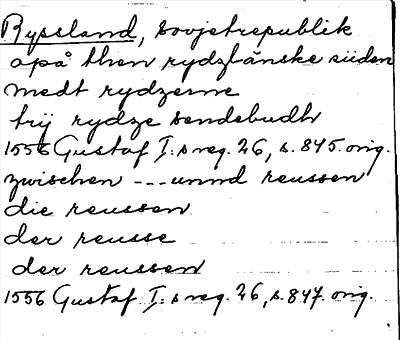 Ryssland, Sovjetrepublik
opå then rydzlänske siiden
medt rydzerne
trij rydze sendebudh
1556 Gustaf I:s reg. 26, s. 845. orig.
zwischen --- unnd reussen
die reussen
der reusse
der reussen
1556 Gustaf I:s reg. 26, s. 847. orig.